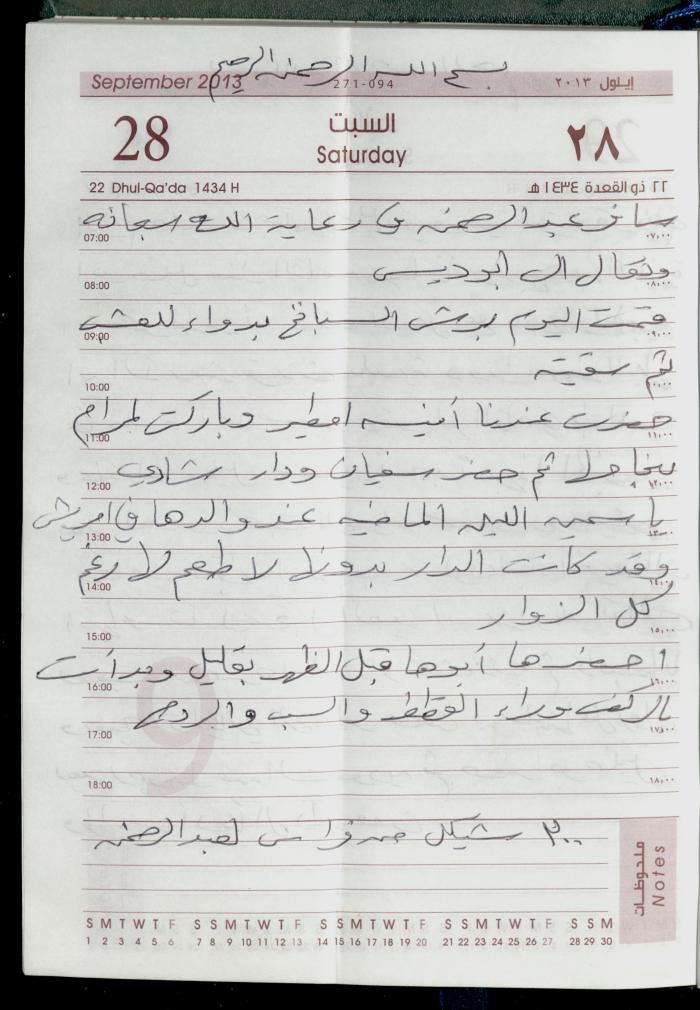 بسم الله الرحمن الرحيم
September 2013 271-094 إيلول ٢٠١٣
28 السبت ٢٨
Saturday
22 Dhul-Qa'da 1434 H ٢٢ ذو القعدة ١٤٣٤ هـ
سافر عبد الرحمن في رعاية الله سبحانه
07:00 ٠٧,٠٠
وتعالى الى ابوديس
08:00 ٠٨,٠٠
قمت اليوم برش السبانخ بدواء للعش
09:00 ٠٩,٠٠
ثم سقيته
10:00 ١٠,٠٠
حضرت عندنا أنيسه امطير وباركت لمرام
11:00 ١١,٠٠
ثم حضر سفيان ودار شادي
12:00 ١٢,٠٠
ياسمين الليله الماضيه عند والدها في امريش
13:00 ١٣,٠٠
وقد كانت الدار بدونها لا طعم لها رغم
14:00 ١٤,٠٠
كل الزوار
15:00 ١٥,٠٠
احضرها أبوها قبل الظهر بقليل وبدأت
16:00 ١٦,٠٠
بالركض وراء القطط والسب والردح
17:00 ١٧,٠٠
18:00 ١٨,٠٠
٣٠٠ شيكل من فراس لعبد الرحمن
ملحوظات Notes
S M T W T F S S M T W T F S S M T W T F S S M T W T F S S M
1 2 3 4 5 6 7 8 9 10 11 12 13 14 15 16 17 18 19 20 21 22 23 24 25 26 27 28 29 30